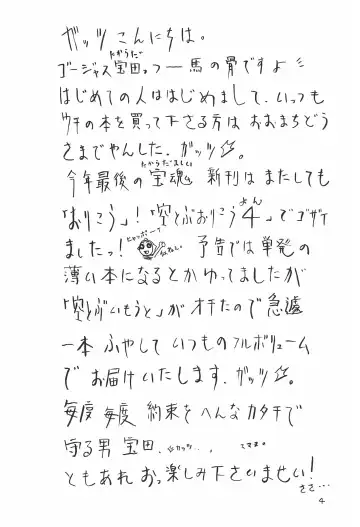 ガッツ こんにちは。
ゴージャス宝田っつー馬の骨ですよ
たからだ
はじめての人ははじめまして、いつも
ウチの本を買って下さる方は おおまちどう
さまでやんした、ガッツ☆。
たからだましい
今年最後の宝魂 新刊は またしても
「おりこう」!「空とぶおりこう4」でゴザイ
よん
ましたっ! 予告では単発の
薄い本になるとかゆってましたが
「空とぶいもうと」がオチたので急遽
一本 ふやして いつものフルボリューム
で お届けいたします、ガッツ☆。
毎度 毎度 約束を へんなカタチで
守る男 宝田、
ともあれ おっ楽しみ下さいませい!
ささ…
4